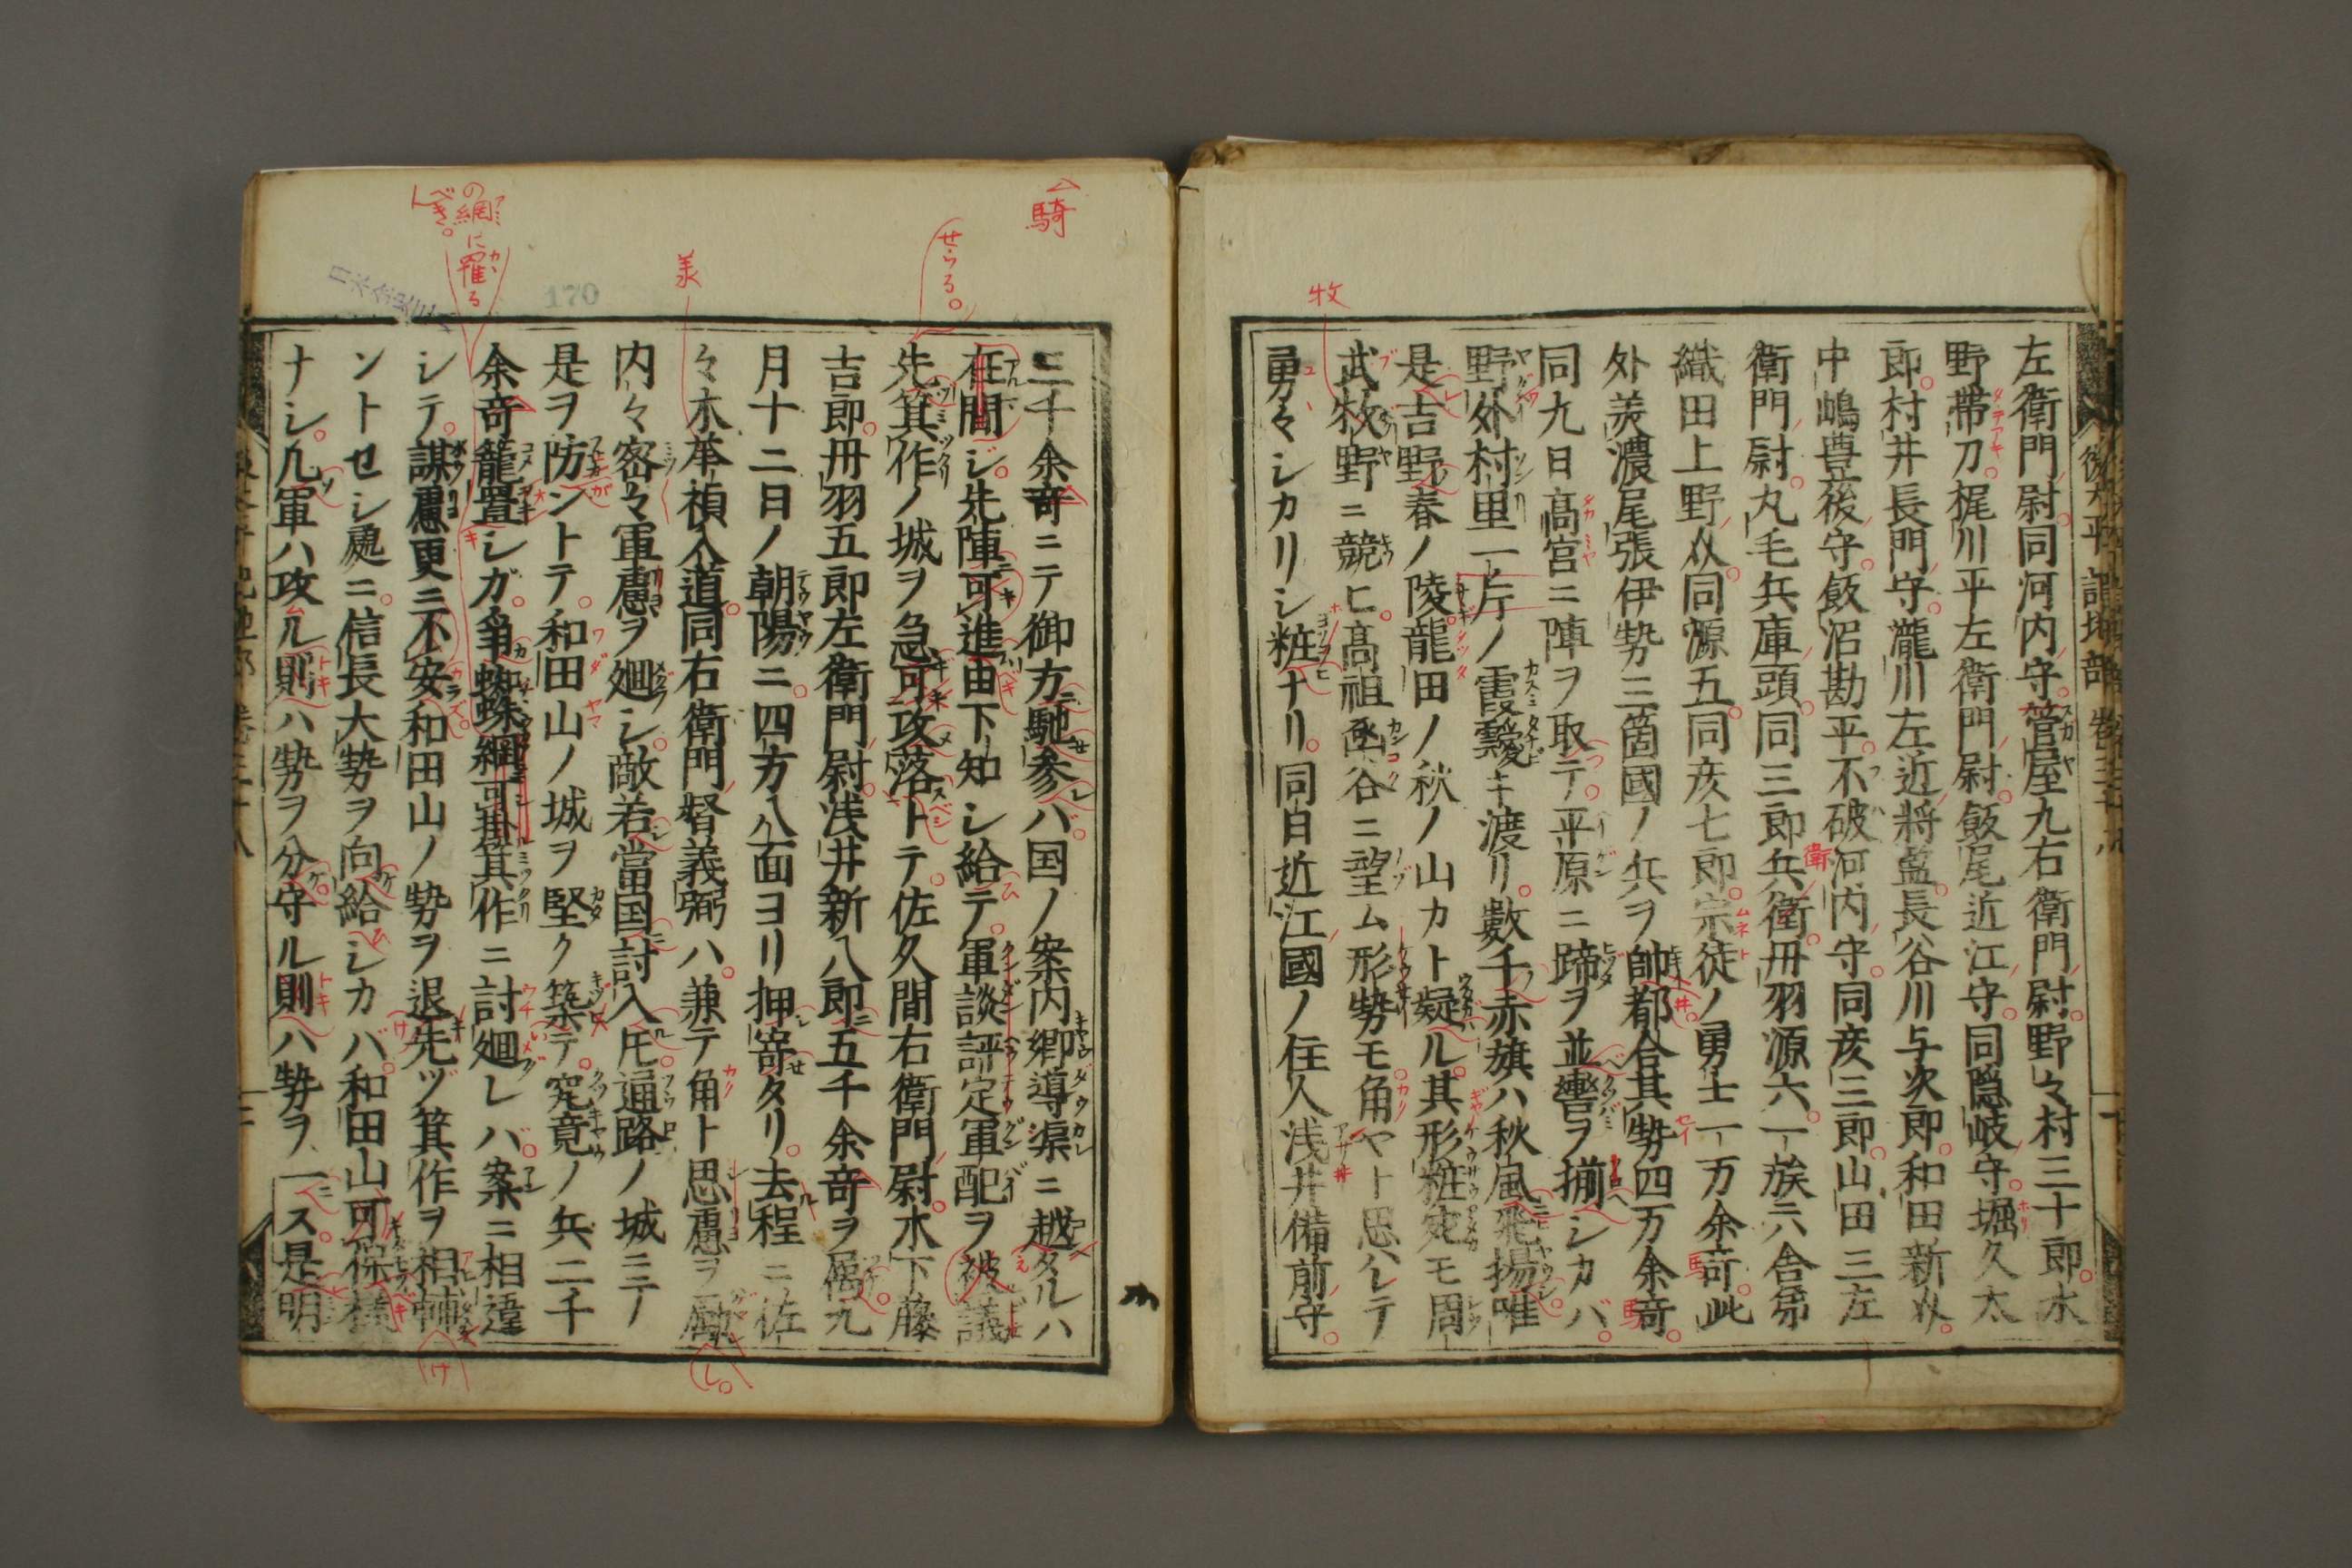 左衛門尉同河内守菅屋九右衛門尉野々村三十郎水
野帯刀梶川平左衛門尉飯尾近江守同隠岐守堀久太
郎村井長門守瀧川左近将監長谷川与次郎和田新介
中嶋豊後守飯沼勘平不破河内守同彦三郎山田三左
衛門尉丸毛兵庫頭同三郎兵衛丹羽源六一族六舎弟
織田上野介同源五同彦七郎宗徒ノ勇士一万余竒此
外美濃尾張伊勢三箇國ノ兵ヲ帥都合其勢四万余竒
同九日髙宮ニ陣ヲ取テ平原ニ蹄ヲ並轡ヲ揃シカバ
野外村里一片ノ霞靉キ渡リ數千赤旗ハ秋風飛揚唯
是吉野春ノ陵龍田ノ秋ノ山カト疑ル其形粧宛モ周
武牧野ニ競ヒ髙祖函谷ニ望ム形勢モ角ヤト思ハレテ
勇々シカリシ粧ナリ同日近江國ノ住人浅井備前守
牧
三千余竒ニテ御方馳参ハ国ノ案内郷導渠ニ越タルハ
在間ジ先陣可進由下知シ給テ軍談評定軍配ヲ被議
先箕作ノ城ヲ急可攻落トテ佐久間右衛門尉木下藤
吉郎丹羽五郎左衛門尉浅井新八郎五千余竒ヲ属九
月十二日ノ朝陽ニ四方八面ヨリ押寄タリ去程ニ佐
々木羕禎入道同右衛門督義弼ハ兼テ角ト思慮ヲ勵
内々密々軍慮ヲ廻シ敵若當国討入圧通路ノ城ニテ
是ヲ防ントテ和田山ノ城ヲ堅ク築テ究竟ノ兵二千
余竒籠置シガ争蜘蛛網可掛箕作ニ討廻レバ案ニ相違
シテ謀慮更ニ不安和田山ノ勢ヲ退先ヅ箕作ヲ相輔
ントセシ處ニ信長大勢ヲ向給シカバ和田山可保様
ナシ凡軍ハ攻ル則ハ勢ヲ分守ル則ハ勢ヲ一ス是明
騎
せらる。
羕
の網に罹るべき。
170